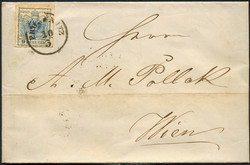 Herrn
A. M. Pollak
Wien